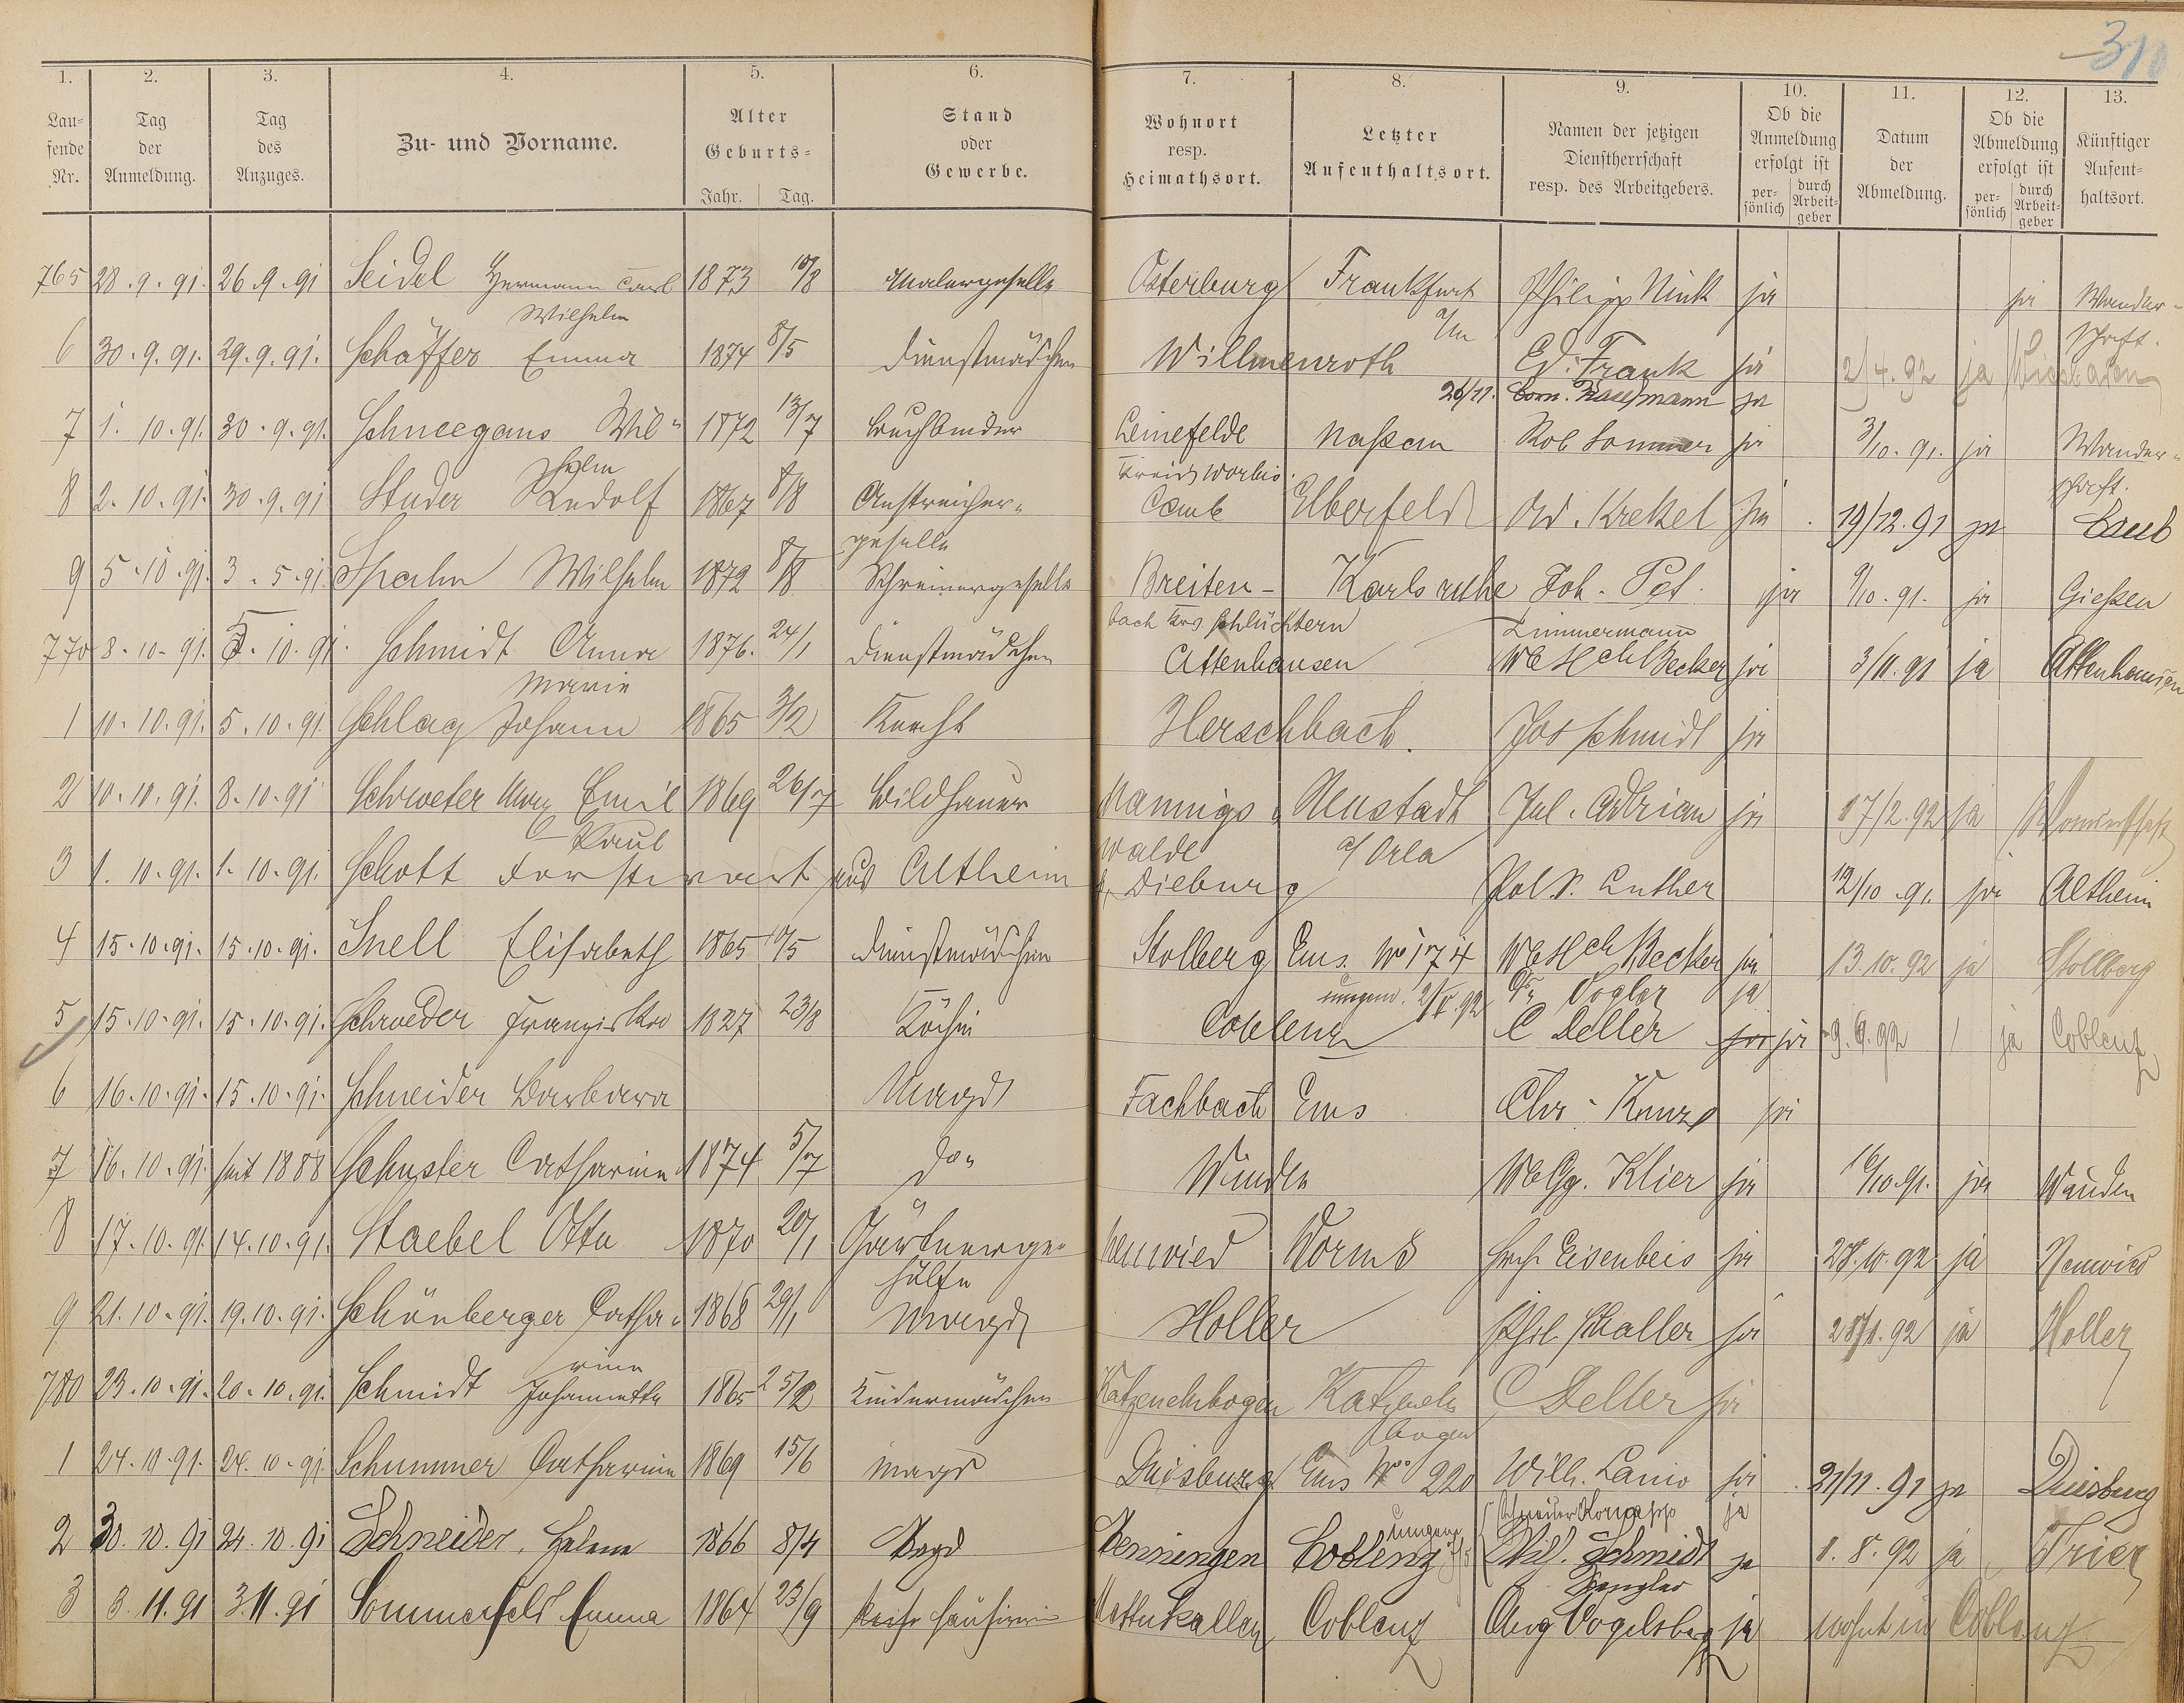 310
1. 2. 3. 4. 5. 6. 7. 8. 9. 10. 11. 12. 13.
Lau-
fende
Nr.
Tag
der
Anmeldung.
Tag
des
Anzuges.
Zu- und Vorname.
Alter
Geburts-
Jahr. Tag.
Stand
oder
Gewerbe.
Wohnort
resp.
Heimathsort.
Letzter
Aufenthaltsort.
Namen der jetzigen
Dienstherrschaft
resp. des Arbeitgebers.
Ob die
Anmeldung
erfolgt ist
per-
sönlich
durch
Arbeit-
geber
Datum
der
Abmeldung.
Ob die
Abmeldung
erfolgt ist
per-
sönlich
durch
Arbeit-
geber
Künftiger
Aufent-
haltsort.
765 28.9.91. 26.9.91 Seidel Hermann Carl 1873 10/8 Malergeselle Osterburg Frankfurt Philipp Nink ja ja Wander-
Wilhelm a/m schaft.
6 30.9.91. 29.9.91. Schäffer Emma 1874 8/5 Dienstmädchen Willmenroth Ed. Frank ja 2/4.92 ja Wiesbaden
26/11. Corn. Kaufmann ja
7 1.10.91. 30.9.91. Schneegans Wil- 1872 13/7 Buchbinder Leinefelde Nassau Rob Sommer ja 3/10.91. ja Wander-
helm Kreis Worbis. schaft.
8 2.10.91. 30.9.91 Studer Rudolf 1867 8/8 Anstreicher- Camb Elberfeld Ad. Krekel ja 19/12.91 ja Caub
geselle
9 5.10.91. 3.5.91. Spahn Wilhelm 1872 8/8 Schreinergeselle Breiten- Karlsruhe Joh. Pet. ja 9/10.91. ja Gießen
bach Krs Schlüchtern Zimmermann
770 8.10.91. 5.10.91. Schmidt Anna 1876. 24/1 Dienstmädchen Attenhausen Wb Hch Becker ja 3/11.91 ja Attenhausen
Marie
1 10.10.91. 5.10.91. Schlag Johann 1865 3/2 Knecht Herschbach. Jos Schmidt ja
2 10.10.91. 8.10.91 Schroeter Max Emil 1869 26/7 Bildhauer Mannigs- Neustadt Jul. Adrian ja 17/2.92 ja Wanderschaft
Paul walde a/ Orla
3 1.10.91. 1.10.91. Schott Forstwart aus Altheim Dieburg Pol. D. Luther 12/10.91. ja Altheim
4 15.10.91. 15.10.91. Snell Elisabeth 1865 10/5 Dienstmädchen Stolberg Ems. No 174 Wb Hch Becker ja 13.10.92 ja Stollberg
umgem. 2/5.92 Dr Vogler ja
5 15.10.91. 15.10.91. Schroeder Franziska 1827 23/8 Köchin Coblenz C Deller ja 9.6.92 ja Coblenz
6 16.10.91. 15.10.91. Schneider Barbara Magd Fachbach Ems Chr. Kunz ja
7 16.10.91. seit 1888 Schuster Catharina 1874 5/7 do Winden Wb Gg. Klier ja 16/10.91. ja Winden
8 17.10.91. 14.10.91. Staebel Otto 1870 20/1 Gärtnerge- Neuwied Worms Hch. Eisenbeis ja 28.10.92 ja Neuwied
hülfe
9 21.10.91. 19.10.91. Schönberger Catha- 1868 29/1 Magd Holler Phil. Schaller ja 28/1.92 ja Holler
rina
780 23.10.91. 20.10.91. Schmidt Johannette 1865 25/2 Kindermädchen Katzenelnbogen Katzeneln C Deller ja
bogen
1 24.10.91. 24.10.91. Schummer Catharina 1869 15/6 Magd Duisburg Ems No 220 Wilh. Lanio ja 21/11.91 ja Duisburg
2 30.10.91 24.10.91 Schneider, Helene 1866 8/4 Magd Wenningen Coblenz Wilh. Schmidt ja 1.8.92 ja Trier
Spengler
3 3.11.91 3.11.91 Sommerfeld Emma 1864 23/9 Coblenz Aug Vogelsberg ja wohnt in Coblenz